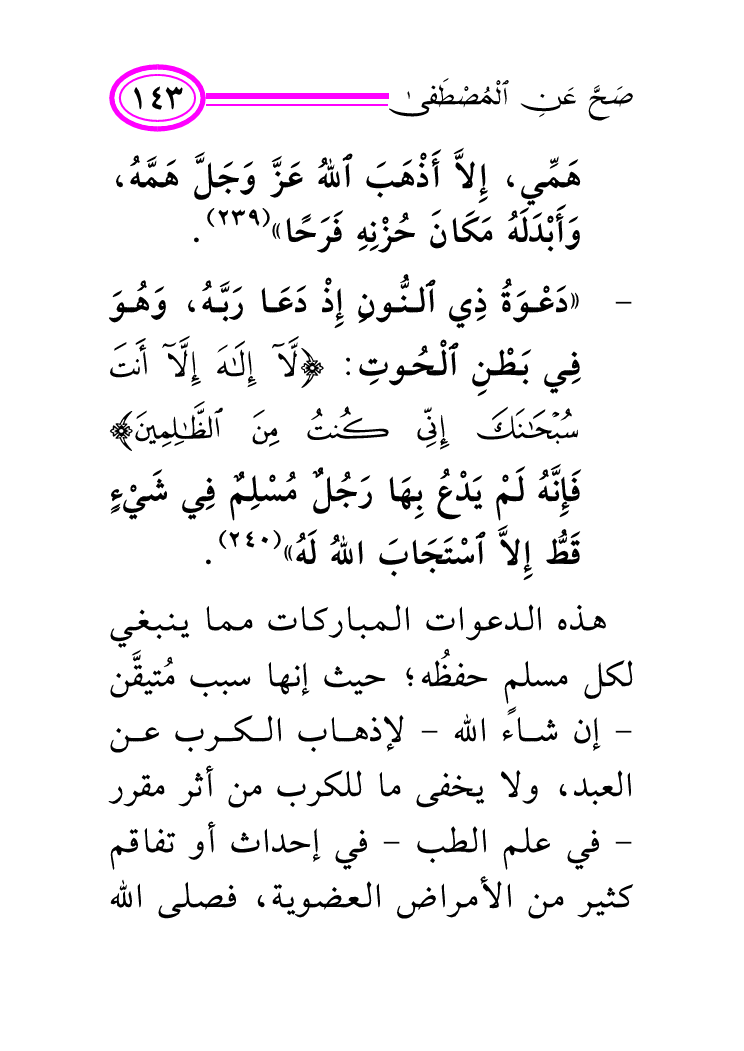 صَحَّ عَنِ ٱلْمُصْطَفىٰ ١٤٣
هَمِّي، إِلاَّ أَذْهَبَ ٱللهُ عَزَّ وَجَلَّ هَمَّهُ،
وَأَبْدَلَهُ مَكَانَ حُزْنِهِ فَرَحًا»(٢٣٩).
- «دَعْـوَةُ ذِي ٱلـنُّـونِ إِذْ دَعَـا رَبَّـهُ، وَهُـوَ
فِي بَـطْـنِ ٱلْـحُـوتِ: ﴿لَّآ إِلَـٰهَ إِلَّآ أَنتَ
سُبْحَـٰنَكَ إِنِّى كُنتُ مِنَ ٱلظَّـٰلِمِينَ﴾
فَإِنَّهُ لَمْ يَدْعُ بِهَا رَجُلٌ مُسْلِمٌ فِي شَيْءٍ
قَطُّ إِلاَّ ٱسْتَجَابَ اللهُ لَهُ»(٢٤٠).
هـذه الـدعـوات الـمـباركات مـمـا يـنـبـغي
لكل مسلمٍ حفظُه؛ حيث إنها سبب مُتيقَّن
- إن شـاء الله - لإذهـاب الـكـرب عـن
العبد، ولا يخفى ما للكرب من أثر مقرر
- في علم الطب - في إحداث أو تفاقم
كثير من الأمراض العضوية، فصلى الله